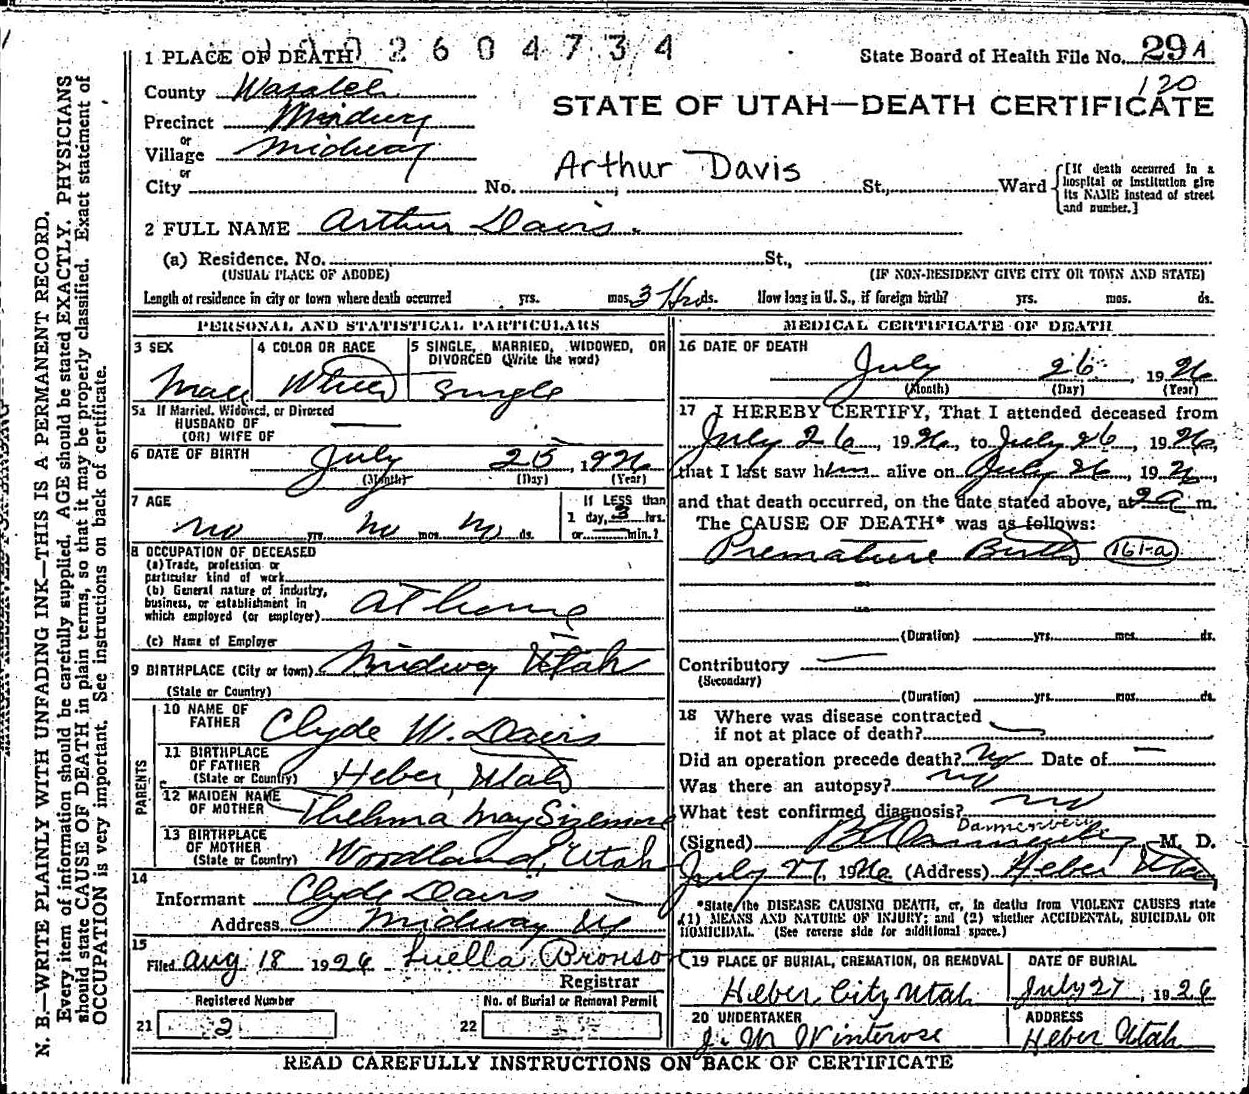 2604734
1 PLACE OF DEATH
State Board of Health File No. 29 A
120
County Wasatch
STATE OF UTAH—DEATH CERTIFICATE
Precinct Midway
or
Village Midway
or
Arthur Davis
City No. , St., Ward
[If death occurred in a hospital or institution give its NAME instead of street and number.]
2 FULL NAME Arthur Davis.
(a) Residence. No. St.,
(USUAL PLACE OF ABODE) (IF NON-RESIDENT GIVE CITY OR TOWN AND STATE)
Length of residence in city or town where death occurred yrs. mos. 3 Hrs ds. How long in U. S., if foreign birth? yrs. mos. ds.
PERSONAL AND STATISTICAL PARTICULARS
3 SEX
Male
4 COLOR OR RACE
White
5 SINGLE, MARRIED, WIDOWED, OR
DIVORCED (Write the word)
Single
5a If Married, Widowed, or Divorced
HUSBAND OF
(OR) WIFE OF
6 DATE OF BIRTH
July 25, 1926
(Month) (Day) (Year)
7 AGE
no yrs. no mos. no ds.
If LESS than
1 day, 3 hrs.
or min.?
8 OCCUPATION OF DECEASED
(a) Trade, profession or
particular kind of work
(b) General nature of industry,
business, or establishment in
which employed (or employer) at home
(c) Name of Employer
9 BIRTHPLACE (City or town) Midway Utah
(State or Country)
PARENTS
10 NAME OF
FATHER Clyde W. Davis
11 BIRTHPLACE
OF FATHER
(State or Country) Heber, Utah
12 MAIDEN NAME
OF MOTHER Thelma May Sizemore
13 BIRTHPLACE
OF MOTHER
(State or Country) Woodland, Utah
14
Informant Clyde Davis
Address Midway Ut
15
Filed Aug 18 1926 Luella Bronson
Registrar
Registered Number
21 2
No. of Burial or Removal Permit
22
MEDICAL CERTIFICATE OF DEATH
16 DATE OF DEATH
July 26, 1926
(Month) (Day) (Year)
17 I HEREBY CERTIFY, That I attended deceased from
July 26, 1926, to July 26, 1926,
that I last saw him alive on July 26, 1926,
and that death occurred, on the date stated above, at 2 a m.
The CAUSE OF DEATH* was as follows:
Premature Birth 161-a
(Duration) yrs. mos. ds.
Contributory
(Secondary)
(Duration) yrs. mos. ds.
18 Where was disease contracted
if not at place of death?
Did an operation precede death? No Date of
Was there an autopsy? no
What test confirmed diagnosis? no
Dannenberg
(Signed) , M. D.
July 27, 1926 (Address) Heber Utah
*State the DISEASE CAUSING DEATH, or, in deaths from VIOLENT CAUSES state
(1) MEANS AND NATURE OF INJURY; and (2) whether ACCIDENTAL, SUICIDAL OR
HOMICIDAL. (See reverse side for additional space.)
19 PLACE OF BURIAL, CREMATION, OR REMOVAL
Heber City Utah
DATE OF BURIAL
July 27, 1926
20 UNDERTAKER
J. M. Winterose
ADDRESS
Heber Utah
READ CAREFULLY INSTRUCTIONS ON BACK OF CERTIFICATE
N. B.—WRITE PLAINLY WITH UNFADING INK—THIS IS A PERMANENT RECORD.
Every item of information should be carefully supplied. AGE should be stated EXACTLY. PHYSICIANS
should state CAUSE OF DEATH in plain terms, so that it may be properly classified. Exact statement of
OCCUPATION is very important. See instructions on back of certificate.